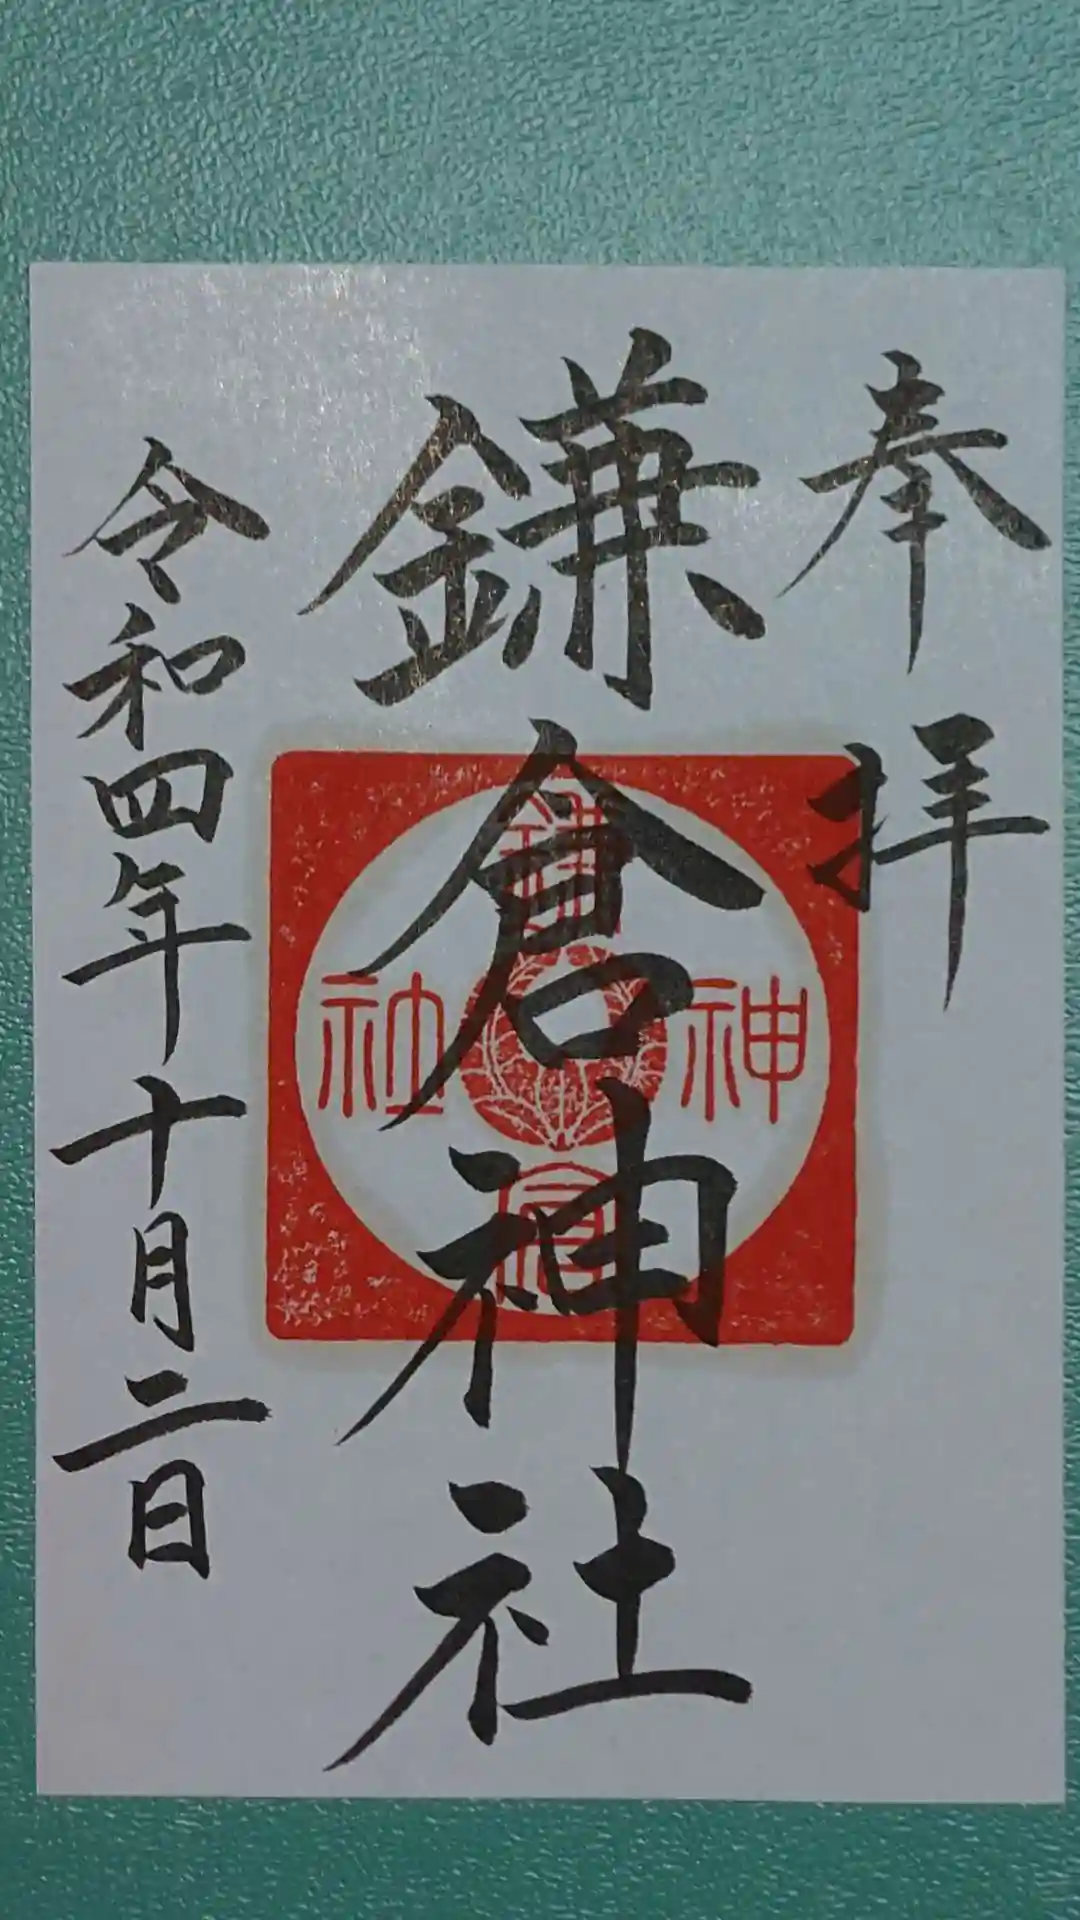 奉拝
鎌倉神社
令和四年十月二日
鎌
神
社
倉